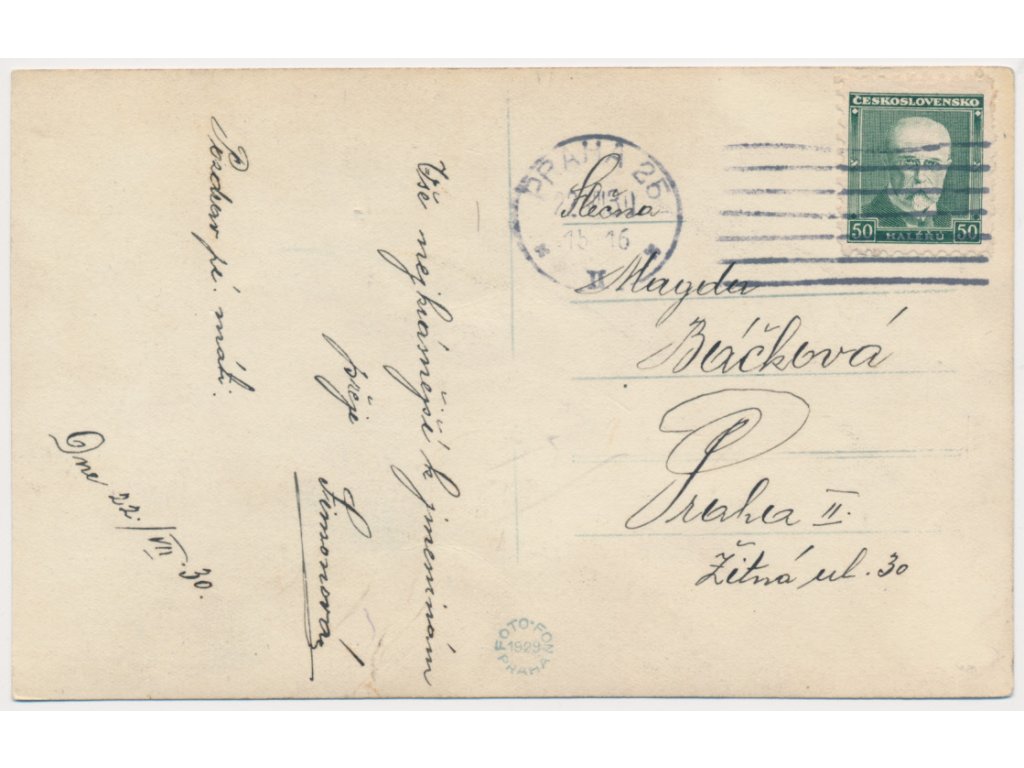 Vše nejkrásnější k jmeninám
přeje
Simonová
Pozdrav pí. máti.
Dne 22./VII. 30.
PRAHA 25
15 16
II
ČESKOSLOVENSKO
50 HALÉŘŮ 50
Slečna
Magda
Beáčková
Praha II.
Žitná ul. 30
FOTO-FON
1929
PRAHA